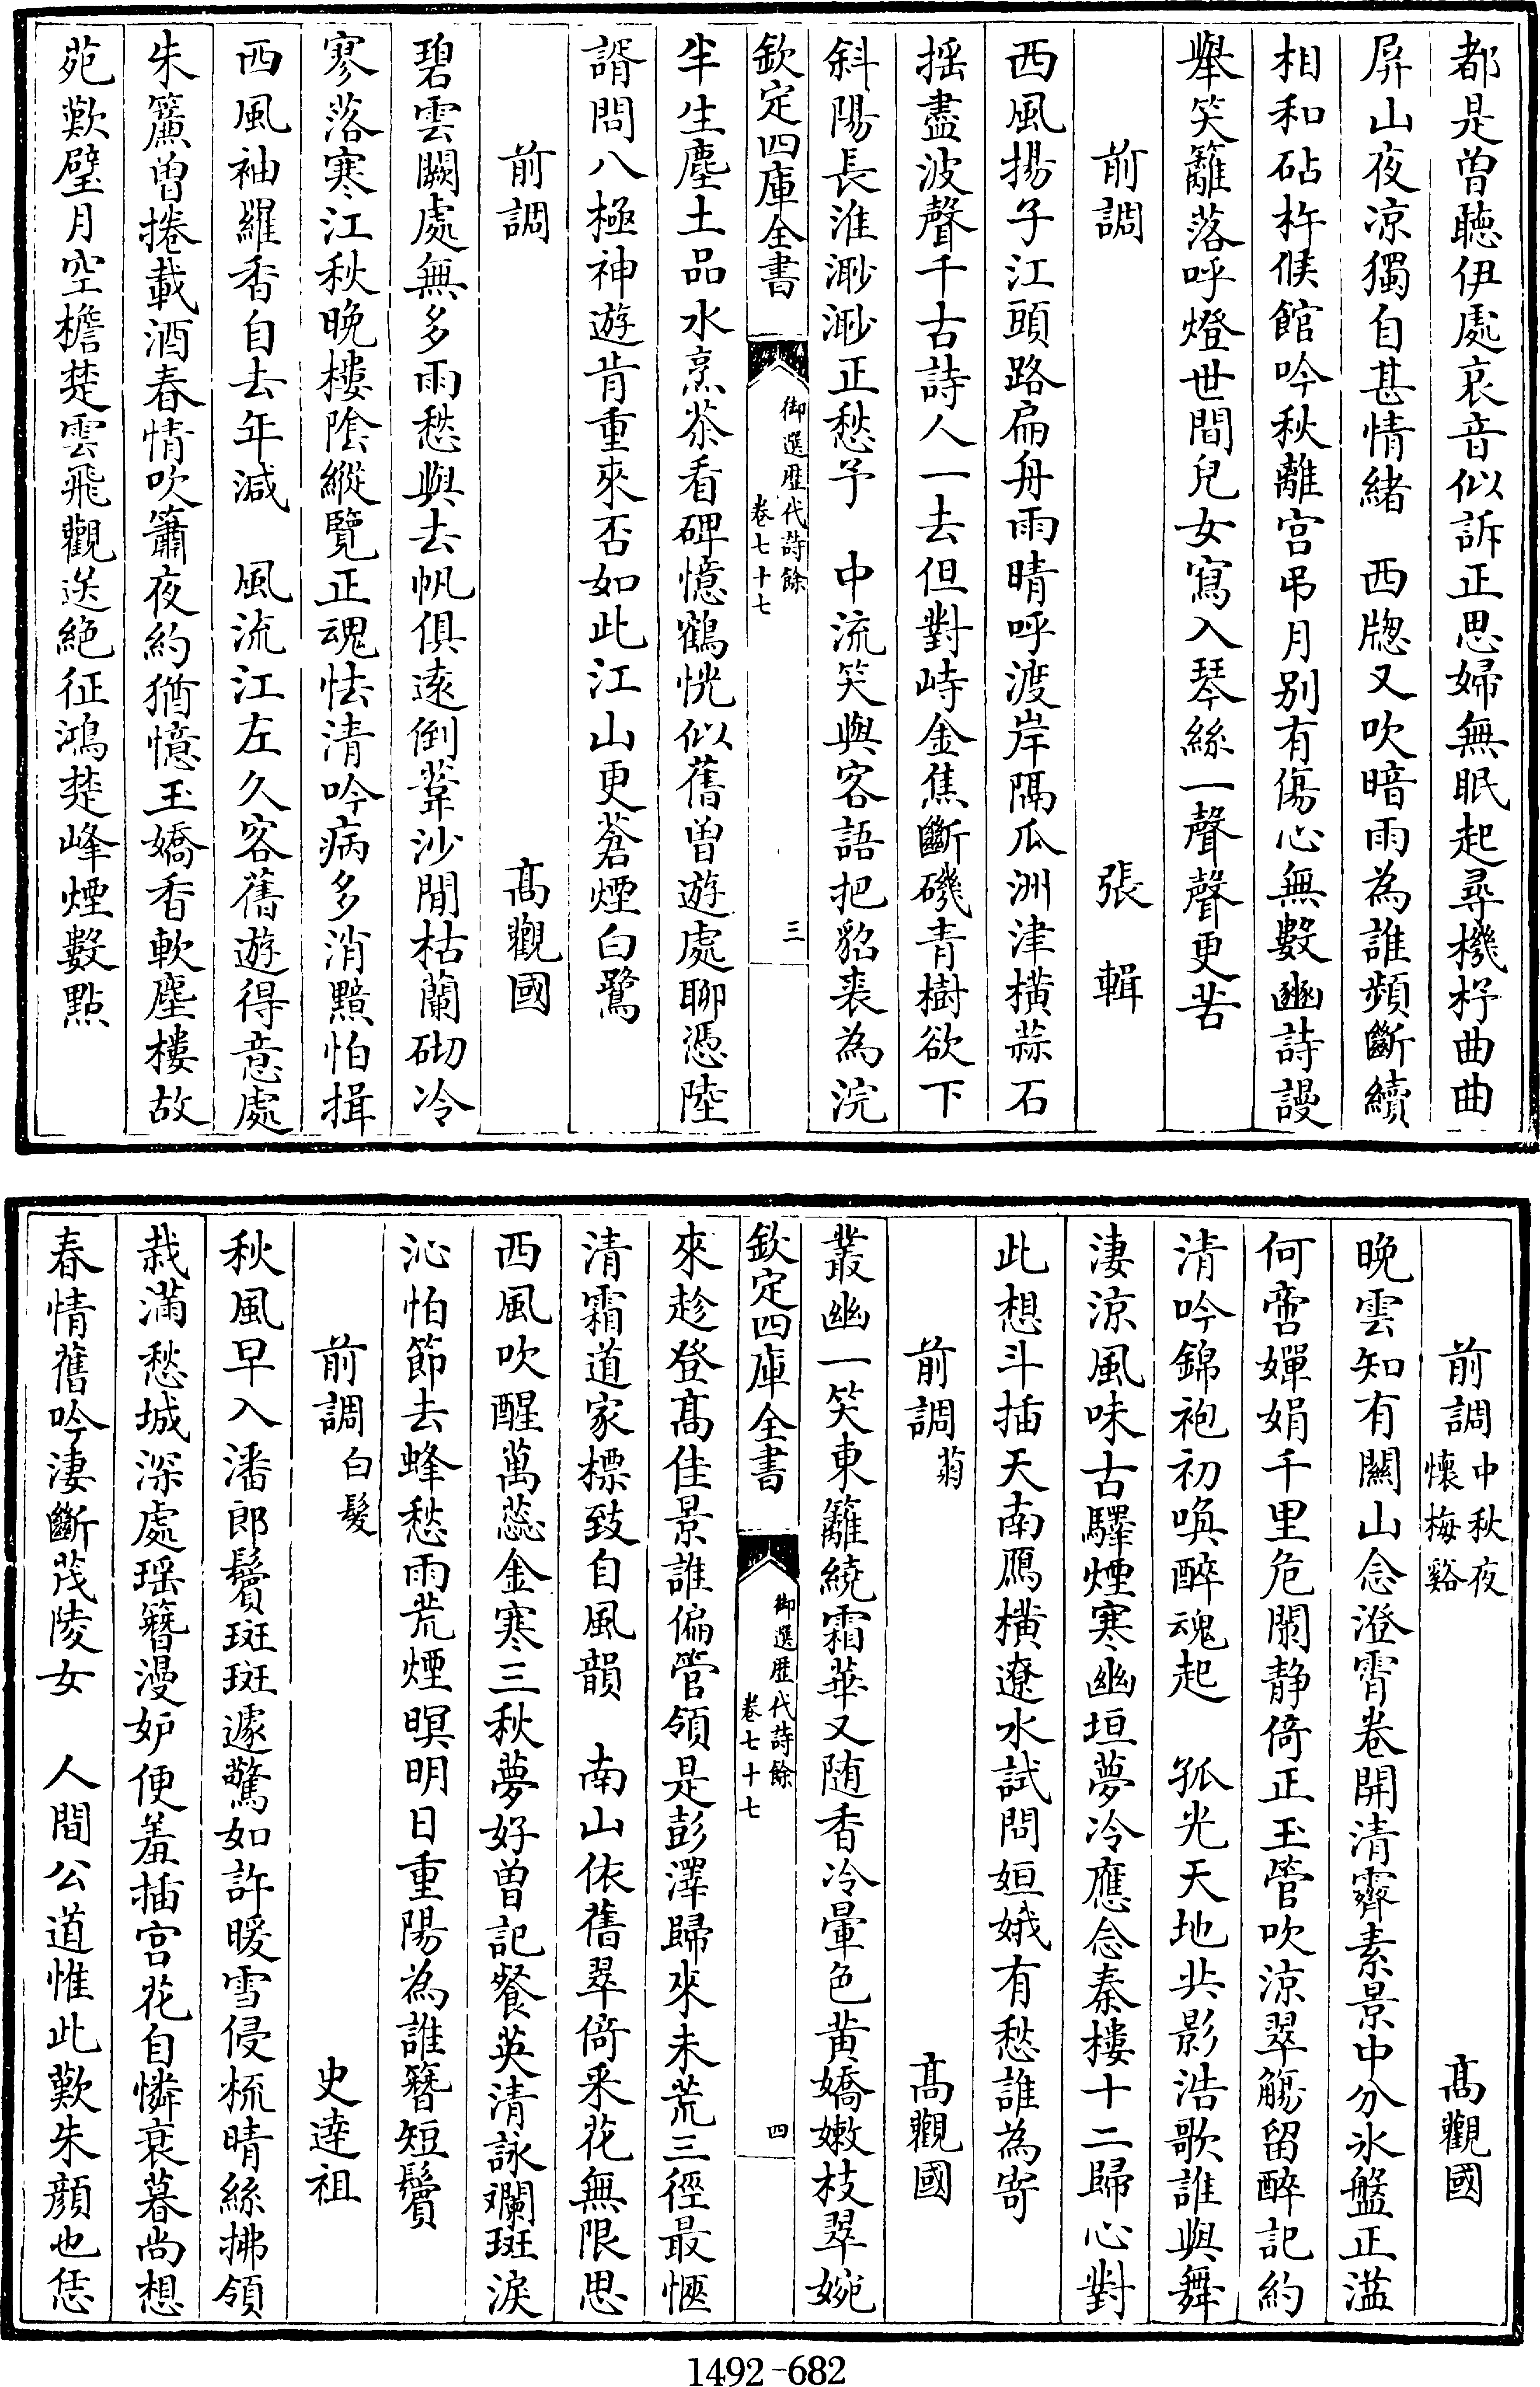 都是曽聽伊處哀音似訴正思婦無眠起尋機杼曲曲
屏山夜凉獨自甚情緒　西牕又吹暗雨為誰頻斷續
相和砧杵候館吟秋離宫弔月别有傷心無數豳詩謾
舉笑籬落呼燈世間兒女寫入琴絲一聲聲更苦
前調　張輯
西風揚子江頭路扁舟雨晴呼渡岸隔瓜洲津橫蒜石
揺盡波聲千古詩人一去但對峙金焦斷磯青樹欲下
斜陽長淮渺渺正愁予　中流笑與客語把貂裘為浣
欽定四庫全書　御選歴代詩餘卷七十七　三
半生塵土品水烹茶看碑憶鶴恍似舊曽遊處聊憑陸
諝問八極神遊肯重來否如此江山更蒼煙白鷺
前調　髙觀國
碧雲闕處無多雨愁與去帆俱遠倒葦沙閒枯蘭砌冷
寥落寒江秋晚樓陰縱覽正魂怯清吟病多消黯怕揖
西風袖羅香自去年減　風流江左久客舊遊得意處
朱簾曽捲載酒春情吹簫夜約猶憶玉嬌香軟塵樓故
苑歎璧月空檐楚雲飛觀送絶征鴻楚峰煙數點
前調　中秋夜懷梅谿　髙觀國
晚雲知有關山念澄霄卷開清霽素景中分氷盤正溢
何啻嬋娟千里危闌静倚正玉管吹凉翠觴留醉記約
清吟錦袍初喚醉魂起　孤光天地共影浩歌誰與舞
淒凉風味古驛煙寒幽垣夢冷應念秦樓十二歸心對
此想斗插天南鴈橫遼水試問姮娥有愁誰為寄
前調　菊　髙觀國
叢幽一笑東籬繞霜華又随香冷暈色黄嬌嫩枝翠婉
欽定四庫全書　御選歴代詩餘卷七十七　四
來趁登髙佳景誰偏管領是彭澤歸來未荒三徑最愜
清霜道家標致自風韻　南山依舊翠倚釆花無限思
西風吹醒萬蕊金寒三秋夢好曽記餐英清詠斕斑淚
沁怕節去蜂愁雨荒煙暝明日重陽為誰簪短鬢
前調　白髮　史達祖
秋風早入潘郎鬢斑斑遽驚如許暖雪侵梳晴絲拂領
栽滿愁城深處瑶簪漫妒便羞插宫花自憐衰暮尚想
春情舊吟淒斷茂陵女　人間公道惟此歎朱顔也恁
1492-682